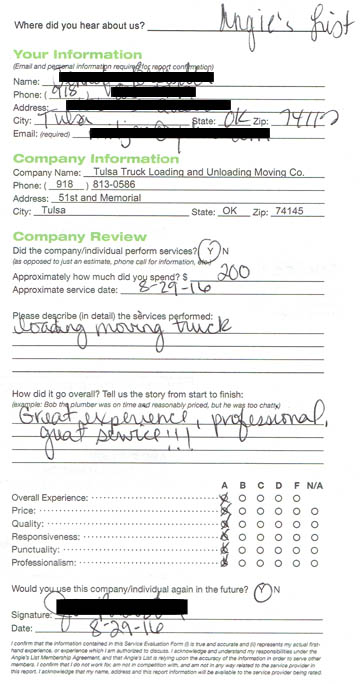 Where did you hear about us? Angie's List
Your Information
(Email and personal information required for report confirmation)
Name:
Phone: ( 918 )
Address:
City: Tulsa State: OK Zip:
Email: (required)
Company Information
Company Name: Tulsa Truck Loading and Unloading Moving Co.
Phone: ( 918 ) 813-0586
Address: 51st and Memorial
City: Tulsa State: OK Zip: 74145
Company Review
Did the company/individual perform services? Y N
(as opposed to just an estimate, phone call for information, etc.)
Approximately how much did you spend? $ 200
Approximate service date: 8-29-16
Please describe (in detail) the services performed:
loading moving truck
How did it go overall? Tell us the story from start to finish:
(example: Bob the plumber was on time and reasonably priced, but he was too chatty)
Great experience, professional,
great service!!!
A B C D F N/A
Overall Experience:
Price:
Quality:
Responsiveness:
Punctuality:
Professionalism:
Would you use this company/individual again in the future? Y N
Signature:
Date: 8-29-16
I confirm that the information contained in this Service Evaluation Form (i) is true and accurate and (ii) represents my actual first-
hand experience, or experience which I am authorized to discuss. I acknowledge and understand my responsibilities under the
Angie's List Membership Agreement, and that Angie's List is relying upon the accuracy of the information in order to serve other
members. I confirm that I do not work for, am not in competition with, and am not in any way related to the service provider in
this report. I acknowledge that my name, address and this report information will be available to the service provider being rated.